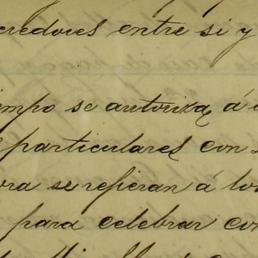 credores entre si y
mpo se autoriza á
particulares con
ora se refieran á los
para celebrar con